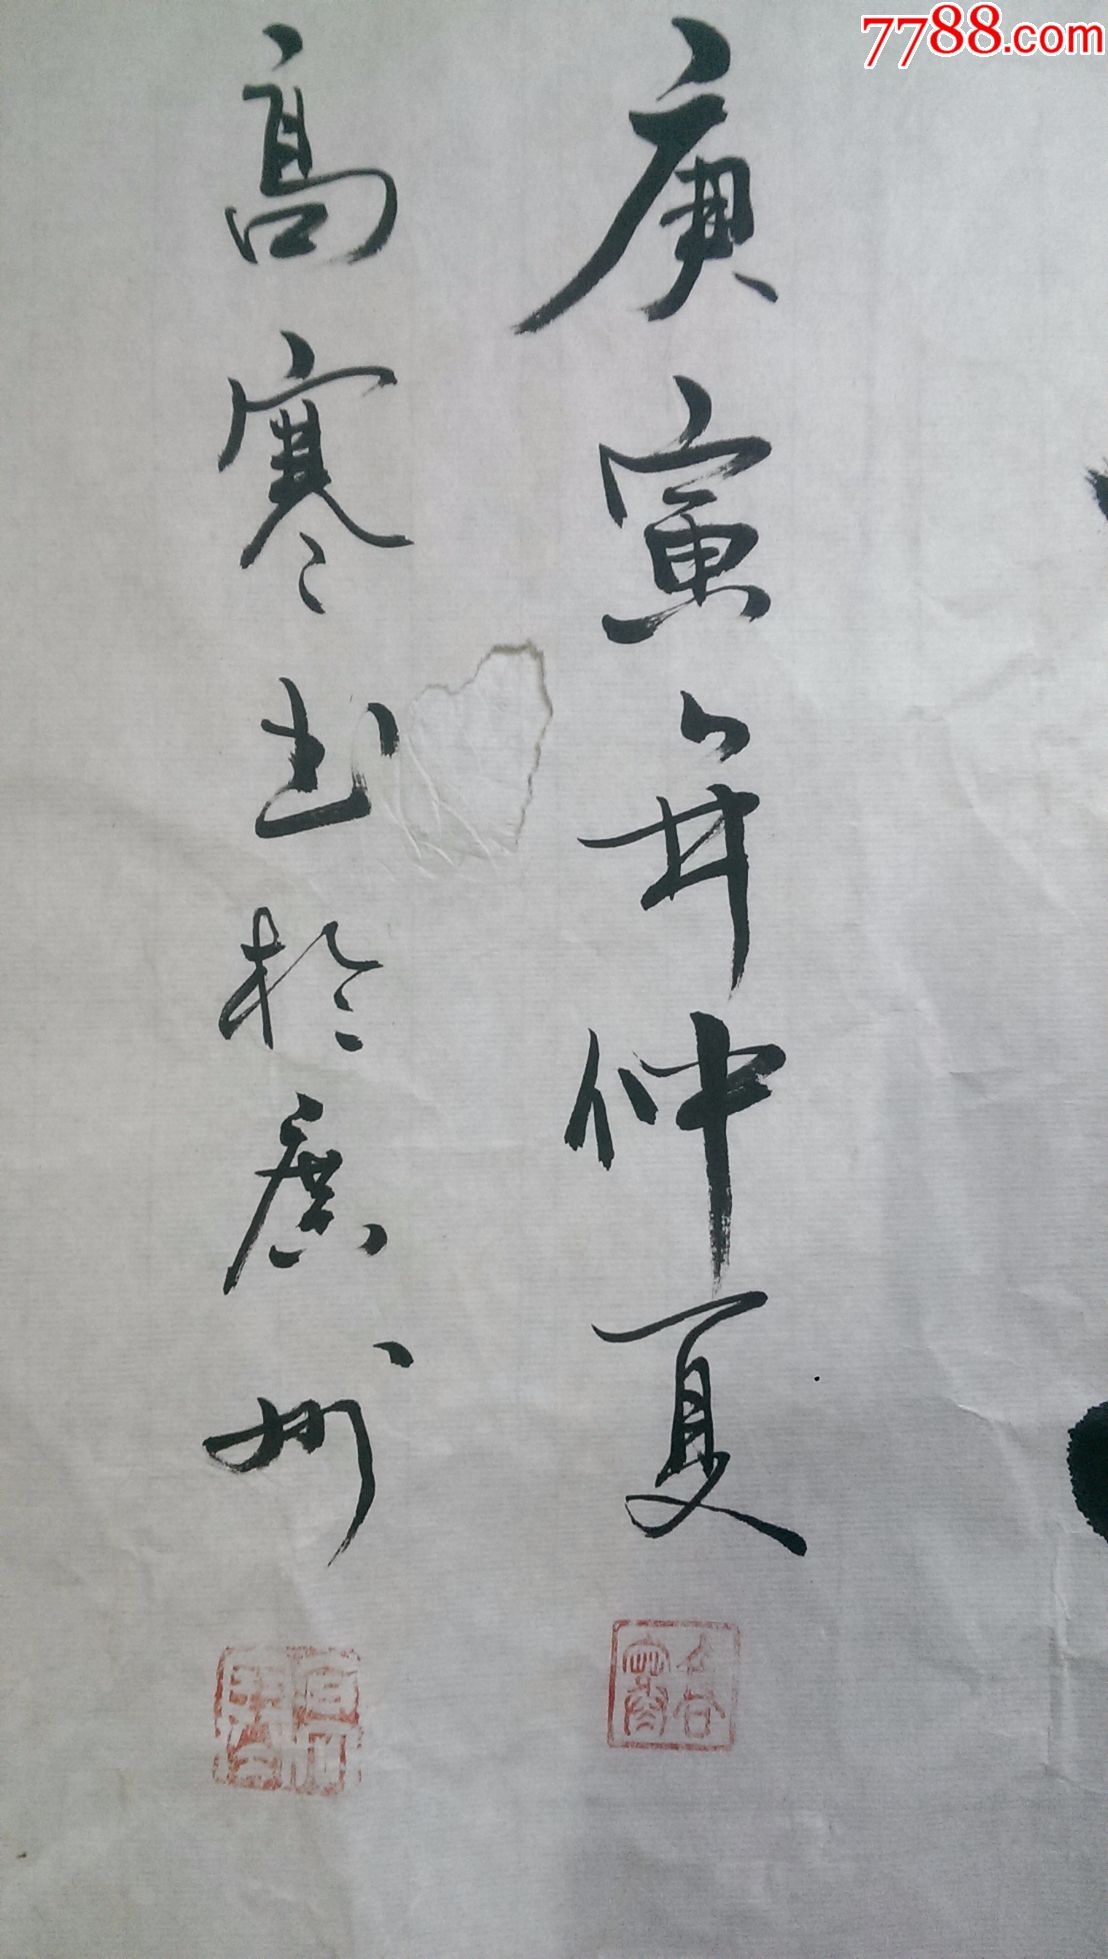 7788.com
庚寅年仲夏
高寒书於广州